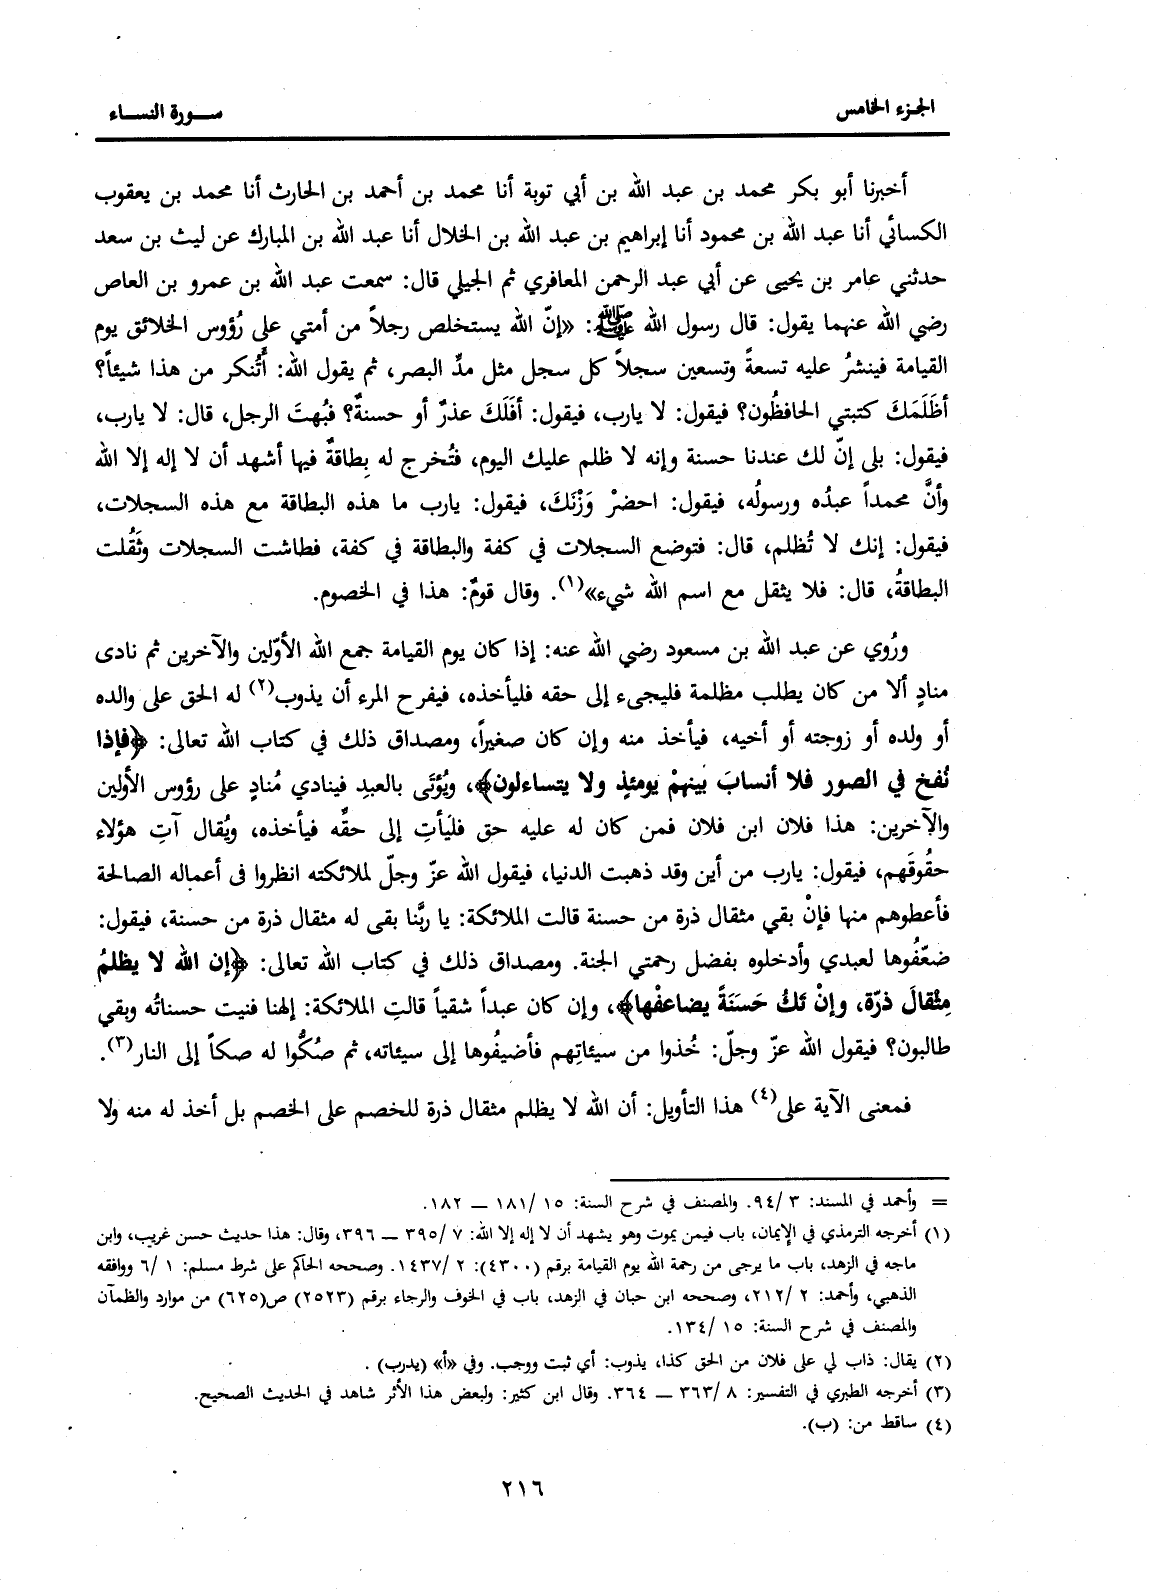 الجزء الخامس
سورة النساء
أخبرنا أبو بكر محمد بن عبد الله بن أبي توبة أنا محمد بن أحمد بن الحارث أنا محمد بن يعقوب
الكسائي أنا عبد الله بن محمود أنا إبراهيم بن عبد الله بن الخلال أنا عبد الله بن المبارك عن ليث بن سعد
حدثني عامر بن يحيى عن أبي عبد الرحمن المعافري ثم الجيلي قال: سمعت عبد الله بن عمرو بن العاص
رضي الله عنهما يقول: قال رسول الله ﷺ: «إنّ الله يستخلص رجلاً من أمتي على رُؤوس الخلائق يوم
القيامة فينشرُ عليه تسعةً وتسعين سجلاً كل سجل مثل مدِّ البصر، ثم يقول الله: أَتُنكر من هذا شيئاً؟
أظَلَمَكَ كتبتي الحافظُون؟ فيقول: لا يارب، فيقول: أفَلَكَ عذرٌ أو حسنةٌ؟ فبُهتَ الرجل، قال: لا يارب،
فيقول: بلى إنّ لك عندنا حسنة وإنه لا ظلم عليك اليوم، فتُخرج له بِطاقةٌ فيها أشهد أن لا إله إلا الله
وأنَّ محمداً عبدُه ورسولُه، فيقول: احضرْ وَزْنَكَ، فيقول: يارب ما هذه البطاقة مع هذه السجلات،
فيقول: إنك لا تُظلم، قال: فتوضع السجلات في كفة والبطاقة في كفة، فطاشت السجلات وثَقُلت
البطاقةُ، قال: فلا يثقل مع اسم الله شيء»(١). وقال قومٌ: هذا في الخصوم.
ورُوي عن عبد الله بن مسعود رضي الله عنه: إذا كان يوم القيامة جمع الله الأوّلين والآخرين ثم نادى
منادٍ ألا من كان يطلب مظلمة فليجىء إلى حقه فليأخذه، فيفرح المرء أن يذوب(٢) له الحق على والده
أو ولده أو زوجته أو أخيه، فيأخذ منه وإن كان صغيراً، ومصداق ذلك في كتاب الله تعالى: ﴿فإذا
نُفخ في الصور فلا أنسابَ بينهمْ يومئذٍ ولا يتساءلون﴾، ويُؤتَى بالعبدِ فينادي مُنادٍ على رؤوس الأولين
والآخرين: هذا فلان ابن فلان فمن كان له عليه حق فليَأتِ إلى حقِّه فيأخذه، ويُقال آتِ هؤلاء
حقُوقَهم، فيقول: يارب من أين وقد ذهبت الدنيا، فيقول الله عزّ وجلّ لملائكته انظروا فى أعماله الصالحة
فأعطوهم منها فإنْ بقي مثقال ذرة من حسنة قالت الملائكة: يا ربَّنا بقى له مثقال ذرة من حسنة، فيقول:
ضعّفُوها لعبدي وأدخلوه بفضل رحمتي الجنة. ومصداق ذلك في كتاب الله تعالى: ﴿إن الله لا يظلمُ
مِثْقالَ ذرّة، وإنْ تَكُ حَسَنَةً يضاعفْها﴾، وإن كان عبداً شقياً قالتِ الملائكة: إلهنا فنيت حسناتُه وبقي
طالبون؟ فيقول الله عزّ وجلّ: خُذوا من سيئاتِهم فأضيفُوها إلى سيئاته، ثم صُكُّوا له صكاً إلى النار(٣).
فمعنى الآية على(٤) هذا التأويل: أن الله لا يظلم مثقال ذرة للخصم على الخصم بل أخذ له منه ولا
= وأحمد في المسند: ٣/٩٤. والمصنف في شرح السنة: ١٥/١٨١ – ١٨٢.
(١) أخرجه الترمذي في الإيمان، باب فيمن يموت وهو يشهد أن لا إله إلا الله: ٧/٣٩٥ – ٣٩٦، وقال: هذا حديث حسن غريب، وابن
ماجه في الزهد، باب ما يرجى من رحمة الله يوم القيامة برقم (٤٣٠٠): ٢/١٤٣٧. وصححه الحاكم على شرط مسلم: ١/٦ ووافقه
الذهبي، وأحمد: ٢/٢١٢، وصححه ابن حبان في الزهد، باب في الخوف والرجاء برقم (٢٥٢٣) ص(٦٢٥) من موارد والظمآن
والمصنف في شرح السنة: ١٥/١٣٤.
(٢) يقال: ذاب لي على فلان من الحق كذا، يذوب: أي ثبت ووجب. وفي «أ» (يدرب) .
(٣) أخرجه الطبري في التفسير: ٨/٣٦٣ – ٣٦٤. وقال ابن كثير: ولبعض هذا الأثر شاهد في الحديث الصحيح.
(٤) ساقط من: (ب).
٢١٦